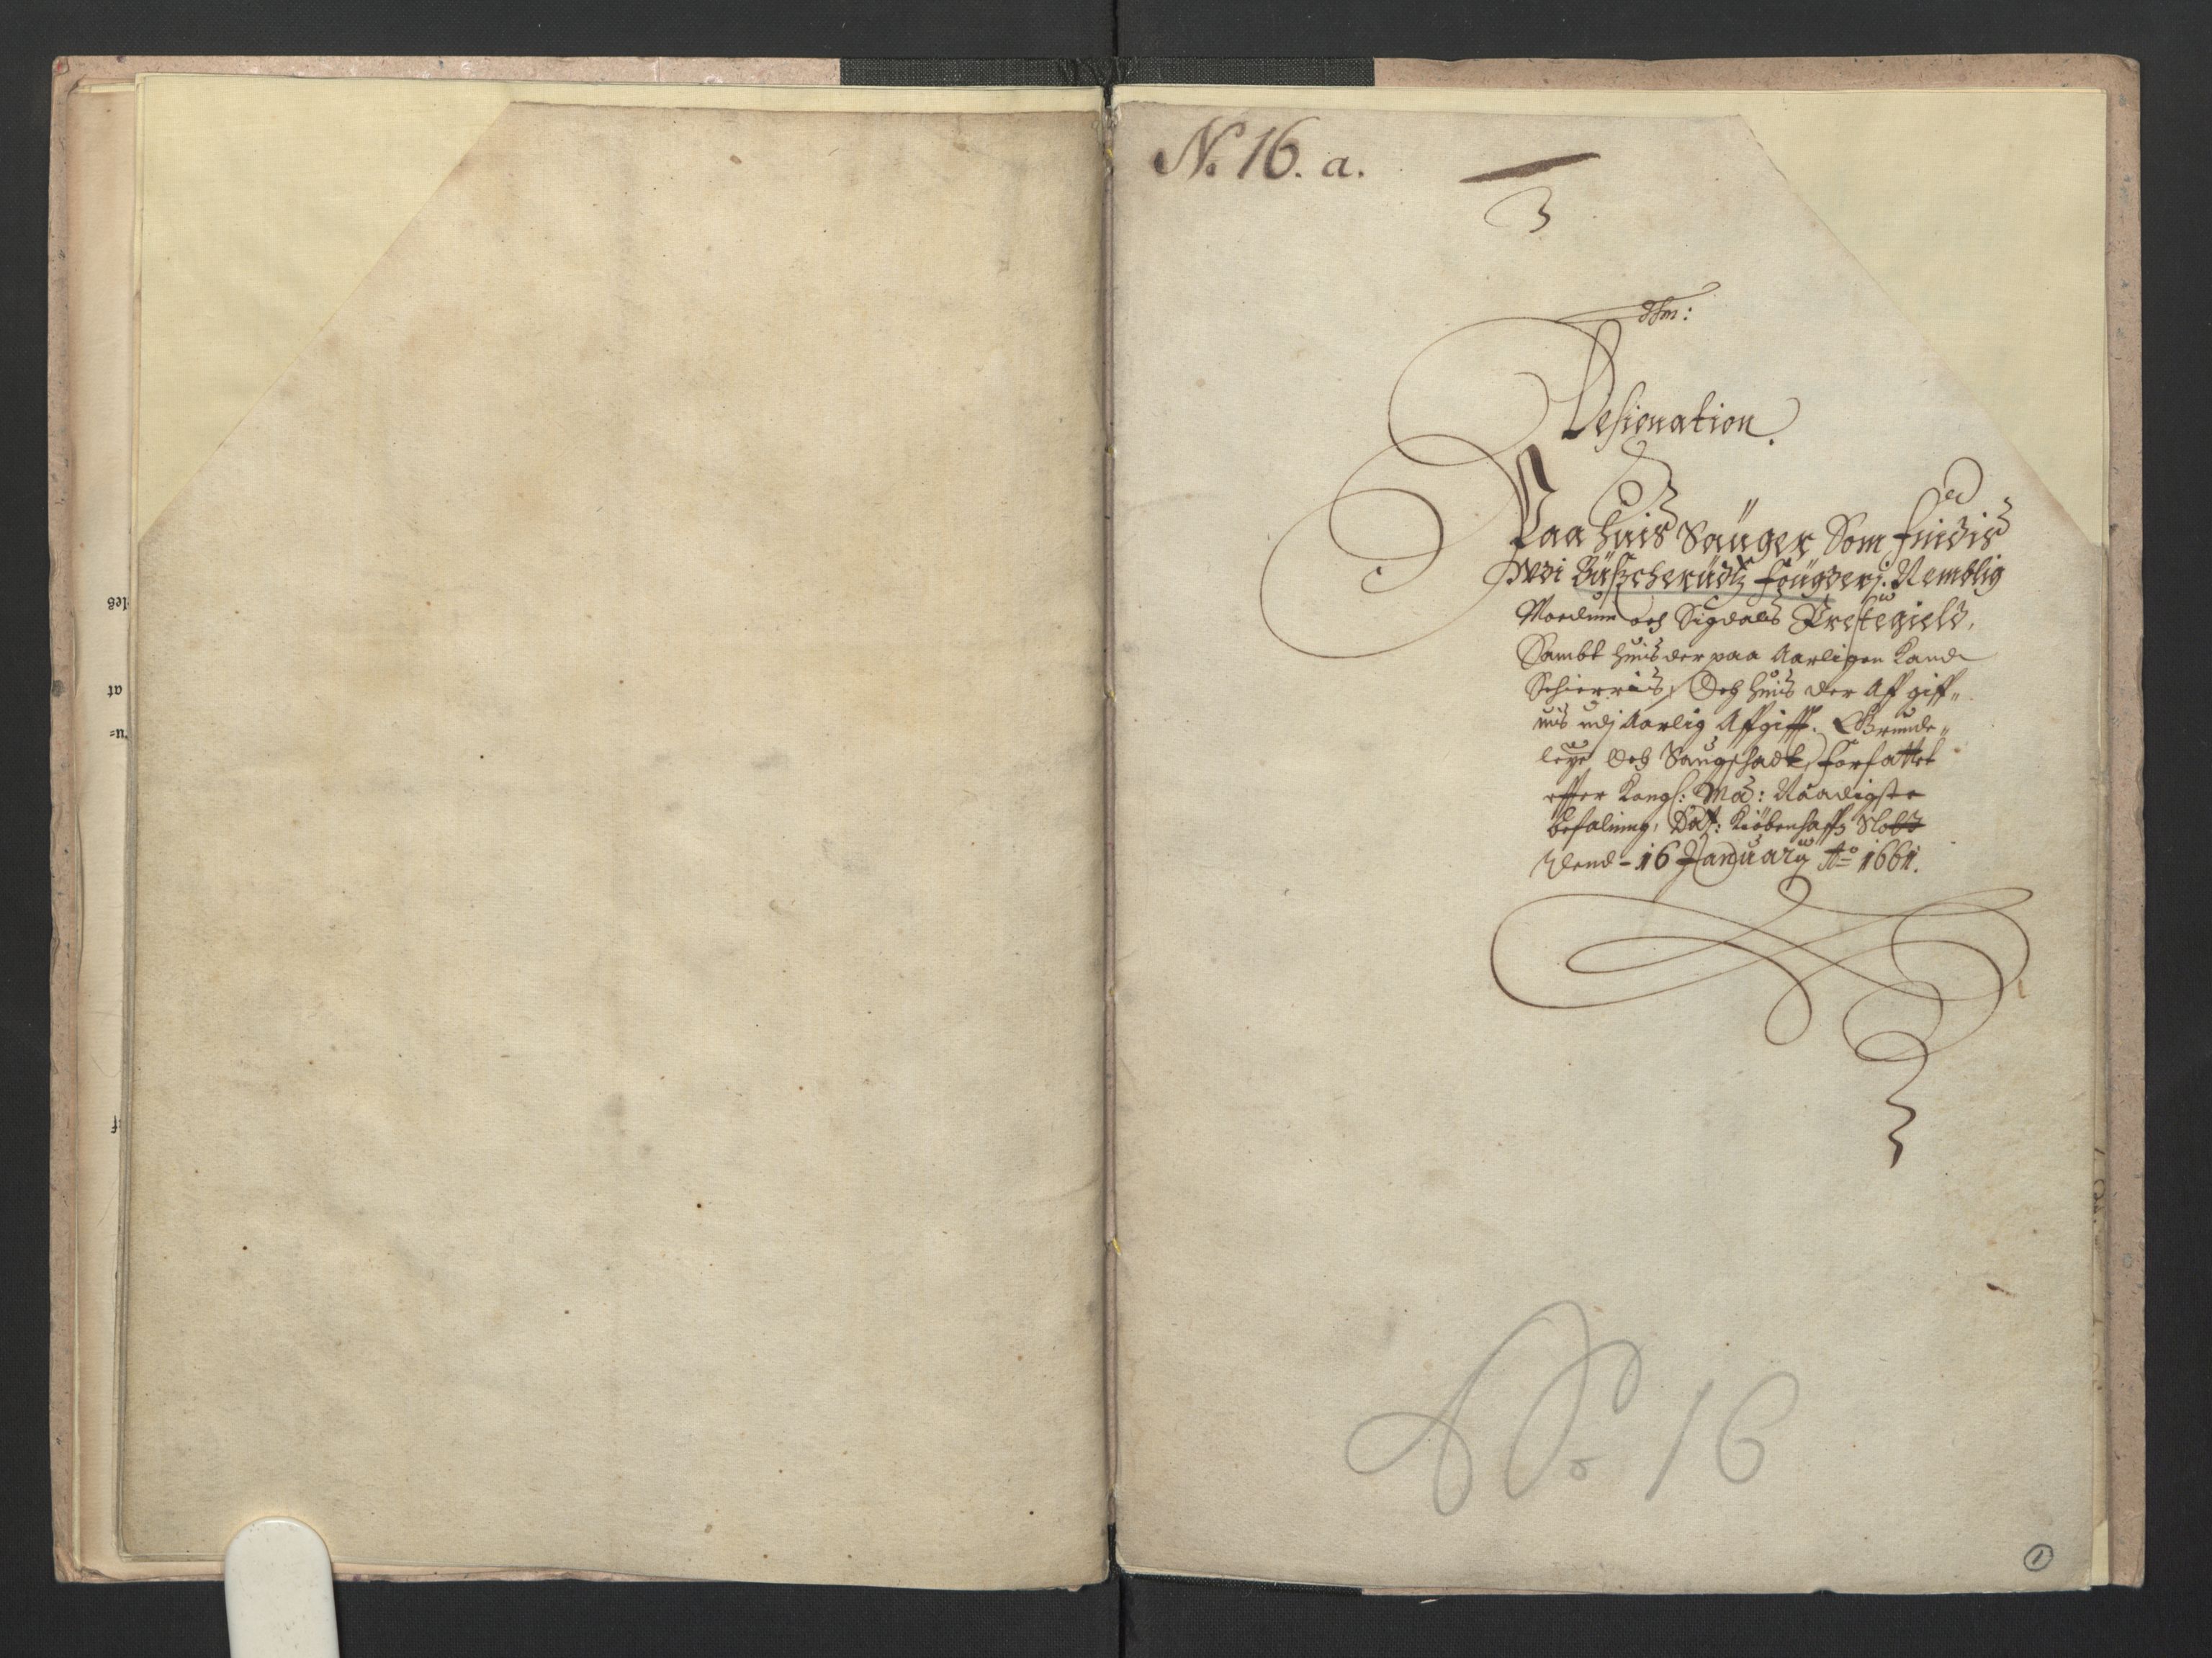 No 16. a.
3
Designation.
Paa huis Sauger Som findis
udi Buscheruds fougderj. Nemblig
Moedum och Sigdals Prestegield,
Sambt huis der paa Aarligen kand
Schierris, Och huis der Aff giff„
uis udj Aarlig Affgifft. Grunde„
leye Och Saugschadt, forfattet
effter Kongl: Maj: Naadigste
befaling, Dat: Kiöbenhaffs Slott
dend - 16 January Ao 1661.
No 16
1